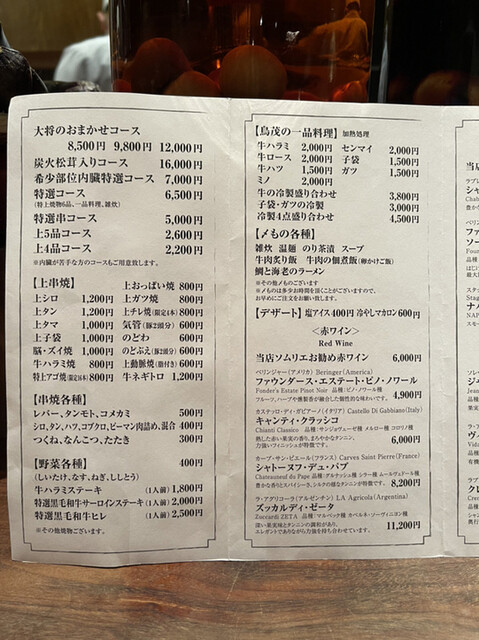 大将のおまかせコース
8,500円 9,800円 12,000円
炭火松茸入りコース 16,000円
希少部位内臓特選コース 7,000円
特選コース 6,500円
(特上焼物6品、一品料理、雑炊)
特選串コース 5,000円
上5品コース 2,600円
上4品コース 2,200円
※内臓が苦手な方のコースもご用意致します。
【上串焼】
上シロ 1,200円
上タン 1,200円
上タマ 1,000円
上子袋 1,000円
脳・ズイ焼 1,000円
牛ハラミ焼 800円
特上アゴ焼(限定16本)800円
上おっぱい焼 800円
上ガツ焼 800円
上チレ焼(限定4本)800円
気管(豚2頭分) 600円
のどわ 600円
のどぶえ(豚2頭分) 600円
上動脈焼(脂付き) 600円
牛ネギトロ 1,200円
【串焼各種】
レバー、タンモト、コメカミ 500円
シロ、タン、ハツ、コブクロ、ピーマン肉詰め、混合 400円
つくね、なんこつ、たたき 300円
【野菜各種】 400円
(しいたけ、なす、ねぎ、ししとう)
牛ハラミステーキ (1人前)1,800円
特選黒毛和牛サーロインステーキ (1人前)2,000円
特選黒毛和牛ヒレ (1人前)2,500円
※その他焼物ございます。
【鳥茂の一品料理】 加熱処理
牛ハラミ 2,000円 センマイ 2,000円
牛ロース 2,000円 子袋 1,500円
牛ハツ 1,500円 ガツ 1,500円
ミノ 2,000円
牛の冷製盛り合わせ 3,800円
子袋・ガツの冷製 3,000円
冷製4点盛り合わせ 4,500円
【〆もの各種】
雑炊 温麺 のり茶漬 スープ
牛肉炙り飯 牛肉の佃煮飯(卵かけご飯)
鯛と海老のラーメン
※その他〆ものございます
※〆ものは多少お時間を頂くことがございますので、
お早めにご注文をお願い致します。
【デザート】 塩アイス400円 冷やしマカロン600円
<赤ワイン>
Red Wine
当店ソムリエお勧め赤ワイン 6,000円
ベリンジャー(アメリカ) Beringer(America)
ファウンダース・エステート・ピノ・ノワール
Founder's Estate Pinot Noir 品種:ピノ・ノワール種
フルーツ、ハーブや燻製香が融合した個性的な味わいです。 4,900円
カステッロ・ディ・ガビアーノ(イタリア) Castello Di Gabbiano(Italy)
キャンティ・クラッシコ
Chianti Classico 品種:サンジョヴェーゼ種 メルロー種 コロリノ種
熟した赤い果実の香り、まろやかなタンニン、
力強いフィニッシュが特徴です。 6,000円
カーブ・サン・ピエール(フランス) Carves Saint Pierre(France)
シャトーヌフ・デュ・パプ
Chateauneuf du Pape 品種:グルナッシュ種 シラー種 ムールヴェドール種
豊かな香りとスパイシーさ、シルクの様なタンニンが特徴です。 8,200円
ラ・アグリコーラ(アルゼンチン) LA Agricola(Argentina)
ズッカルディ・ゼータ
Zuccardi ZETA 品種:マルベック種 カベルネ・ソーヴィニヨン種
深い果実味とタンニンの調和があり、
エレガントでありながら力強さを持ち合わせています。 11,200円
当店